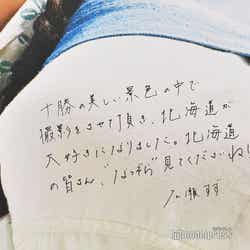 十勝の美しい景色の中で
撮影をさせて頂き、北海道が
大好きになりました。北海道
の皆さん、"なつぞら"見てくださいね!
広瀬すず
modelpress